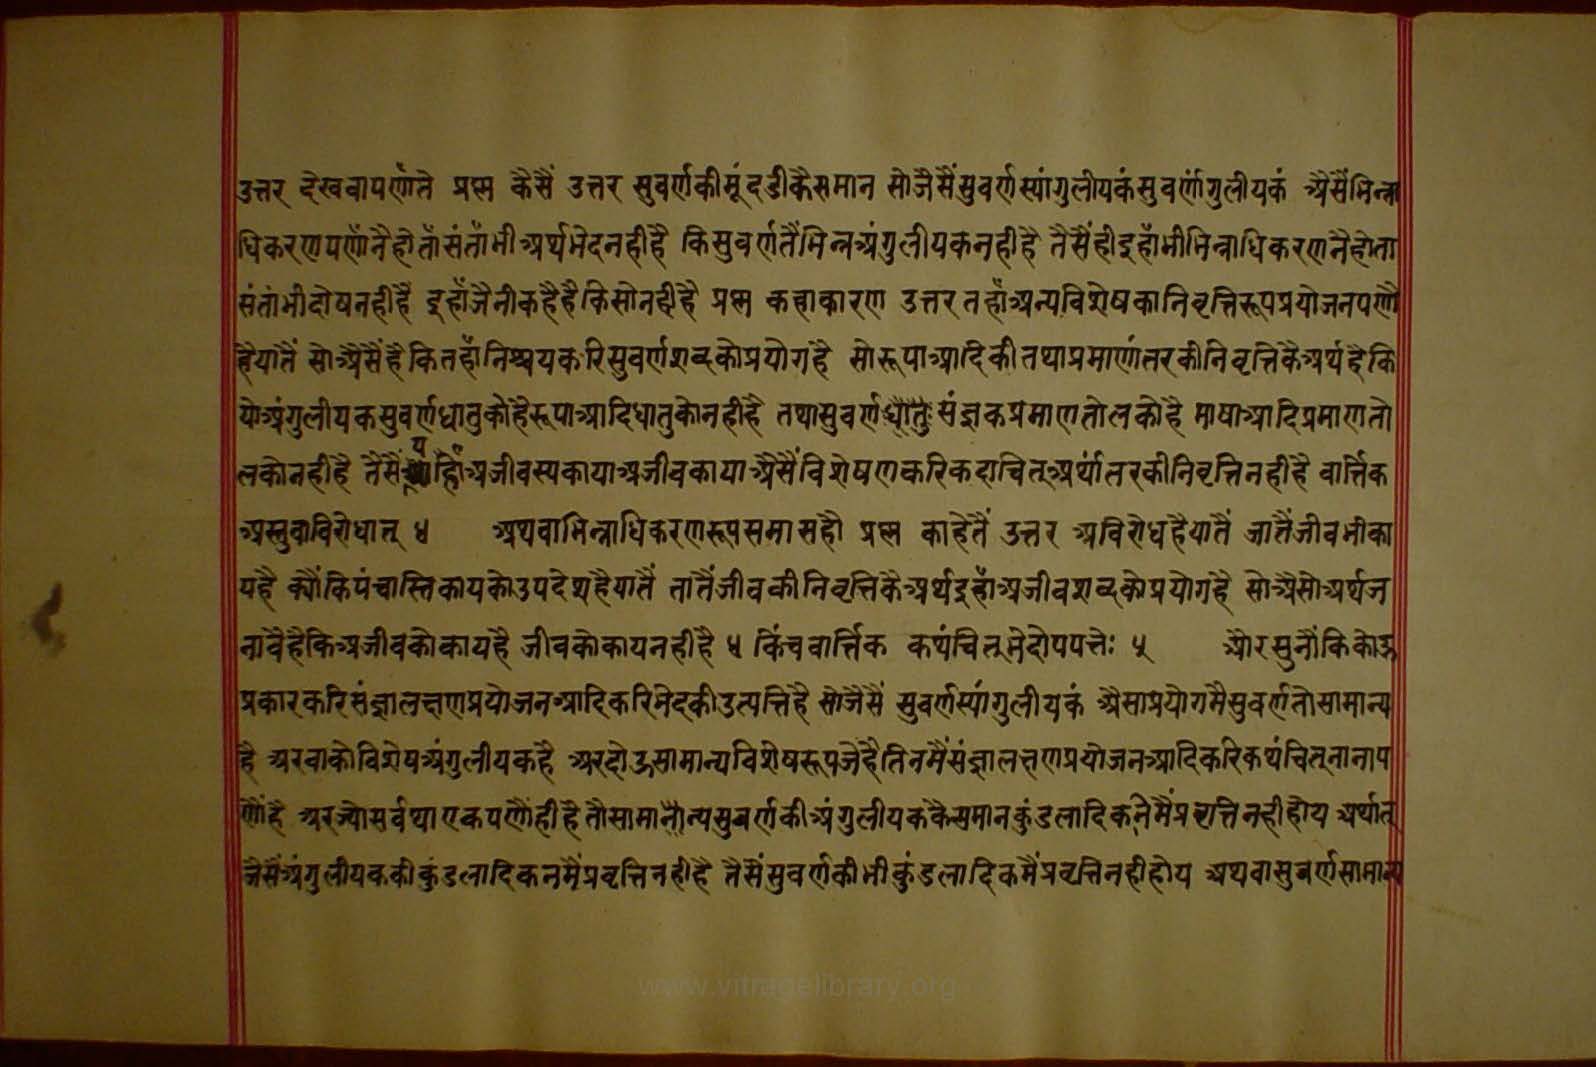 उत्तर देखवापणाँते प्रष्ण कैसैं उत्तर सुवर्णकीमूंदडीकैसमान सोजैसैंसुवर्णस्यांगुलीयकंसुवर्णांगुलीयकं अैसैंभिन्ना
धिकरणपणाँनैहोताँसंताँभीअर्थभेदनहीहै किसुवर्णतैंभिन्नअंगुलीयकनहीहै तैसैंहीइहाँभीभिन्नाधिकरणनैहोता
संतांभीदोषनहीहै इहाँजैनीकहैहैकिसोनहीहै प्रष्ण कहाकारण उत्तर तहाँअन्यविशेषकानिवृत्तिरूपप्रयोजनपणौ
हैयातैं सोअैसैंहैकितहाँनिश्चयकरिसुवर्णशब्दकोप्रयोगहै सोरूपाआदिकीतथाप्रमाणांतरकीनिवृत्तिकैअर्थहैकि
योअंगुलीयकसुवर्णधातुकोहैरूपाआदिधातुकोनहीहै तथासुवर्णधातुसंज्ञकप्रमाणतोलकोहै माषाआदिप्रमाणतो
लकोनहीहै तैसैंयहाँअजीवस्यकायाअजीवकाया अैसैंविशेषणकरिकदाचित्अर्थांतरकीनिवृत्तिनहीहै वार्त्तिक
अस्तुवाविरोधात् ४ अथवाभिन्नाधिकरणरूपसमासहौ प्रष्ण काहेतैं उत्तर अविरोधहैयातैं जातैंजीवभीका
यहै क्यौंकिपंचास्तिकायकोउपदेशहैयातैं तातैंजीवकीनिवृत्तिकैअर्थइहाँअजीवशब्दकोप्रयोगहै सोअैसोअर्थज
नावैहैकिअजीवकोकायहै जीवकोकायनहीहै ४ किंचवार्त्तिक कथंचित्भेदोपपत्तेः ५ औरसुनौंकिकोऊ
प्रकारकरिसंज्ञालक्षणप्रयोजनआदिकरिभेदकीउत्पत्तिहै सोजैसैं सुवर्णस्यांगुलीयकं अैसाप्रयोगमैसुवर्णतोसामान्य
है अरवाकोविशेषअंगुलीयकहै अरदोऊसामान्यविशेषरूपजेहैतिनमैंसंज्ञालक्षणप्रयोजनआदिकरिकथंचित्नानाप
णोंहै अरज्योसर्वथाएकपणौंहीहैतौसामान्यसुवर्णकीअंगुलीयककैसमानकुंडलादिकनमैंप्रवृत्तिनहीहोय अर्थात्
जैसैंअंगुलीयककीकुंडलादिकनमैंप्रवृत्तिनहीहै तैसैंसुवर्णकीभीकुंडलादिकमैंप्रवृत्तिनहीहोय अथवासुवर्णसामान्य
www.vitragelibrary.org